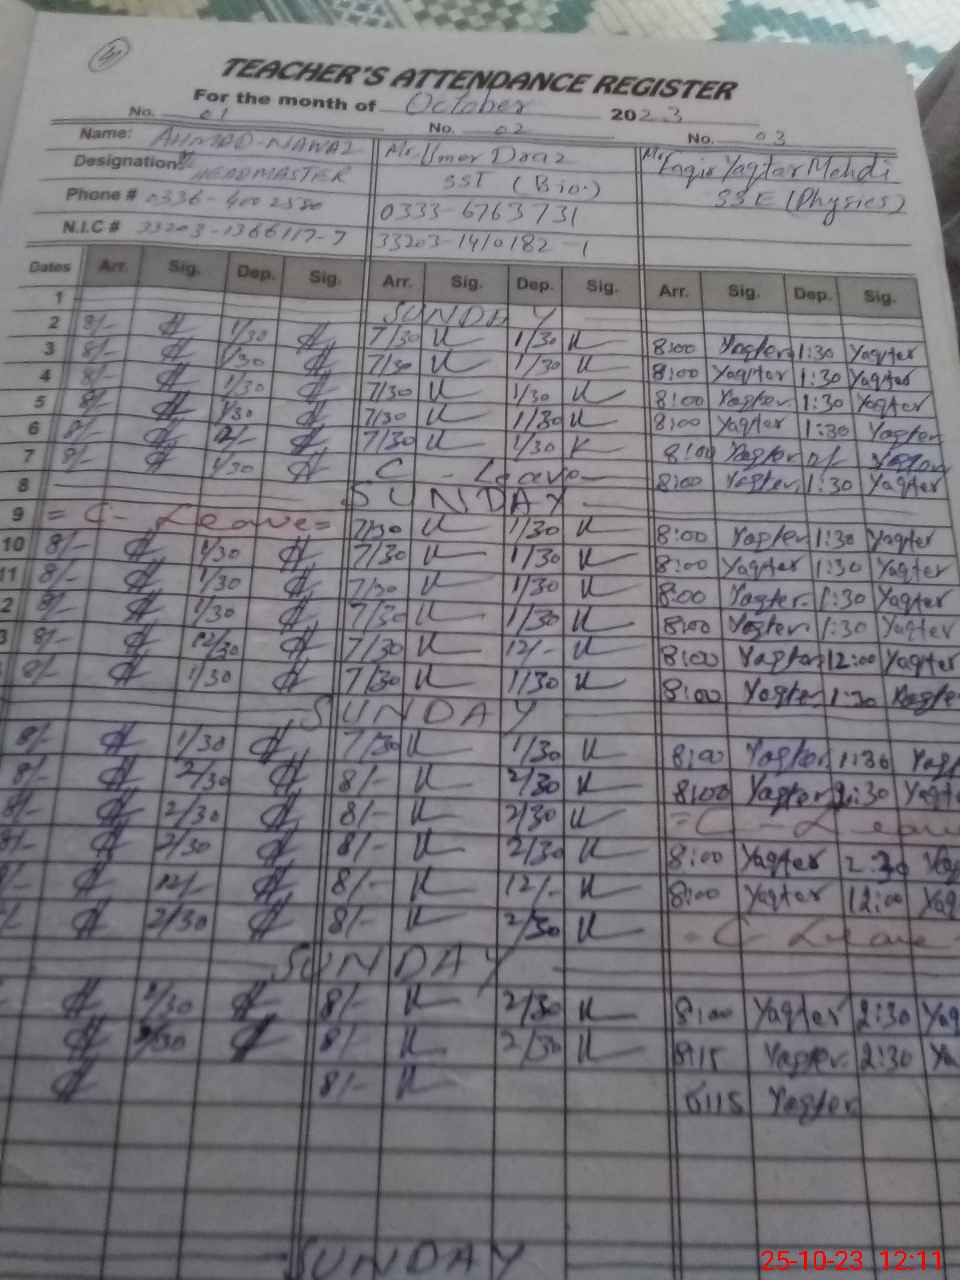 TEACHER'S ATTENDANCE REGISTER
For the month of October 2023
No. 01 No. 02 No. 03
Name: AHMAD NAWAZ Mr. Umer Daraz Mr. Engir Yaqtar Mehdi
Designation: HEADMASTER SST (Bio.) SSE (Physics)
Phone # 0336-4002580 0333-6763731
N.I.C # 33203-1366117-7 33203-1410182-1
Dates Arr. Sig. Dep. Sig. Arr. Sig. Dep. Sig. Arr. Sig. Dep. Sig.
1 SUNDAY
2 8/- 1/30 7/30 1/30 8:00 Yaqter 1:30 Yaqter
3 8/- 1/30 7/30 1/30 8:00 Yaqter 1:30 Yaqter
4 8/- 1/30 7/30 1/30 8:00 Yaqter 1:30 Yaqter
5 8/- 1/30 7/30 1/30 8:00 Yaqter 1:30 Yaqter
6 8/- 12/- 7/30 1/30 8:00 Yaqter Yaqter
7 8/- 1/30 C - Leave 8:00 Yaqter 1:30 Yaqter
8 SUNDAY
9 = C - Leave = 7/30 1/30 8:00 Yaqter 1:30 Yaqter
10 8/- 1/30 7/30 1/30 8:00 Yaqter 1:30 Yaqter
11 8/- 1/30 7/30 1/30 8:00 Yaqter 1:30 Yaqter
2 8/- 1/30 7/30 1/30 8:00 Yaqter 1:30 Yaqter
3 8/- 12/30 7/30 12/- 8:00 Yaqter 12:00 Yaqter
8/- 1/30 7/30 1/30 8:00 Yaqter 1:30 Yaqter
SUNDAY
8/- 1/30 7/30 1/30 8:00 Yaqter 1:30 Yaqt
8/- 2/30 8/- 2/30 8:00 Yaqter 2:30 Yaqt
8/- 2/30 8/- 2/30 = C - Leave
8/- 2/30 8/- 2/30 8:00 Yaqter 2:30 Yaq
12/- 8/- 12/- 8:00 Yaqter 12:00 Yaq
2/30 8/- 2/30 - C - Leave
SUNDAY
2/30 8/- 2/30 8:00 Yaqter 2:30 Yaq
2/30 8/- 2/30 8:15 Yaqter 2:30 Ya
8/- Yaqter
SUNDAY
25-10-23 12:11